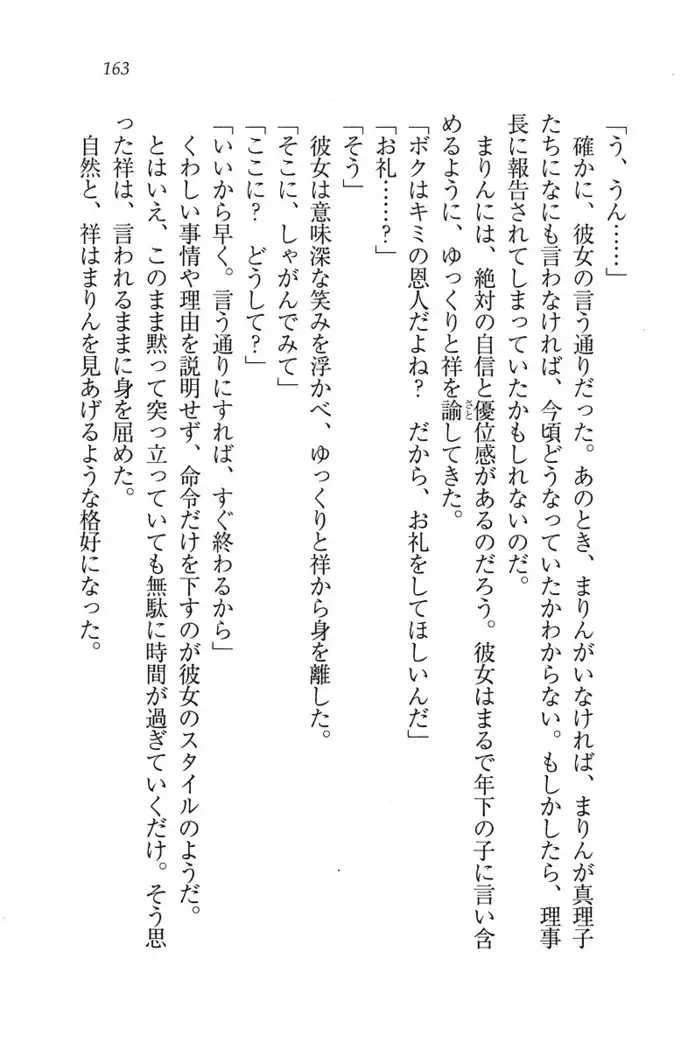 163
「う、うん……」
確かに、彼女の言う通りだった。あのとき、まりんがいなければ、まりんが真理子
たちになにも言わなければ、今頃どうなっていたかわからない。もしかしたら、理事
長に報告されてしまっていたかもしれないのだ。
まりんには、絶対の自信と優位感があるのだろう。彼女はまるで年下の子に言い含
めるように、ゆっくりと祥を諭してきた。
さと
「ボクはキミの恩人だよね? だから、お礼をしてほしいんだ」
「お礼……?」
「そう」
彼女は意味深な笑みを浮かべ、ゆっくりと祥から身を離した。
「そこに、しゃがんでみて」
「ここに? どうして?」
「いいから早く。言う通りにすれば、すぐ終わるから」
くわしい事情や理由を説明せず、命令だけを下すのが彼女のスタイルのようだ。
とはいえ、このまま黙って突っ立っていても無駄に時間が過ぎていくだけ。そう思
った祥は、言われるままに身を屈めた。
自然と、祥はまりんを見あげるような格好になった。